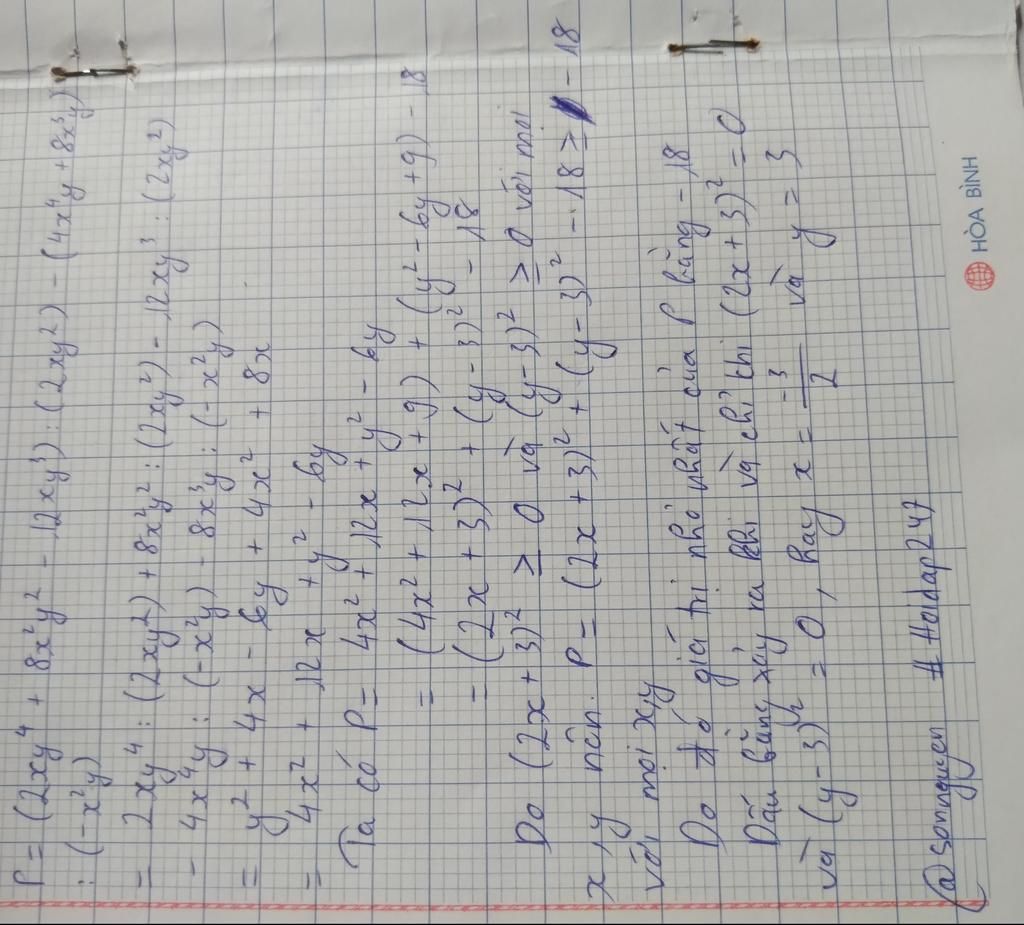 P = (2xy⁴ + 8x²y² - 12xy³) : (2xy²) - (4x⁴y + 8x³y)
: (-x²y)
= 2xy⁴ : (2xy²) + 8x²y² : (2xy²) - 12xy³ : (2xy²)
- 4x⁴y : (-x²y) - 8x³y : (-x²y)
= y² + 4x - 6y + 4x² + 8x
= 4x² + 12x + y² - 6y
Ta có P = 4x² + 12x + y² - 6y
= (4x² + 12x + 9) + (y² - 6y + 9) - 18
= (2x + 3)² + (y - 3)² - 18
Do (2x + 3)² ≥ 0 và (y - 3)² ≥ 0 với mọi
x, y nên. P = (2x + 3)² + (y - 3)² - 18 ≥ - 18
với mọi x,y
Do đó giá trị nhỏ nhất của P bằng - 18
Dấu bằng xảy ra khi và chỉ khi (2x + 3)² = 0
và (y - 3)² = 0, hay x = -3/2 và y = 3
@songuyen # Hoidap247
HÒA BÌNH